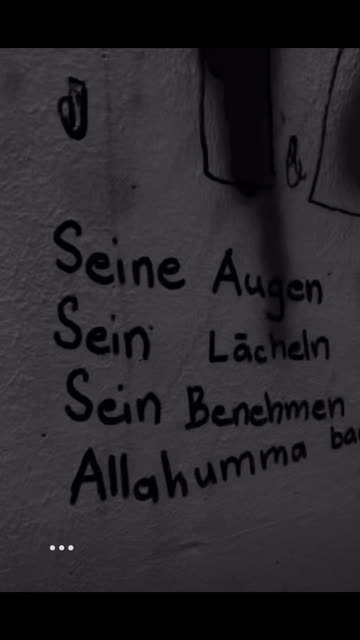 &
Seine Augen
Sein Lächeln
Sein Benehmen
Allahumma